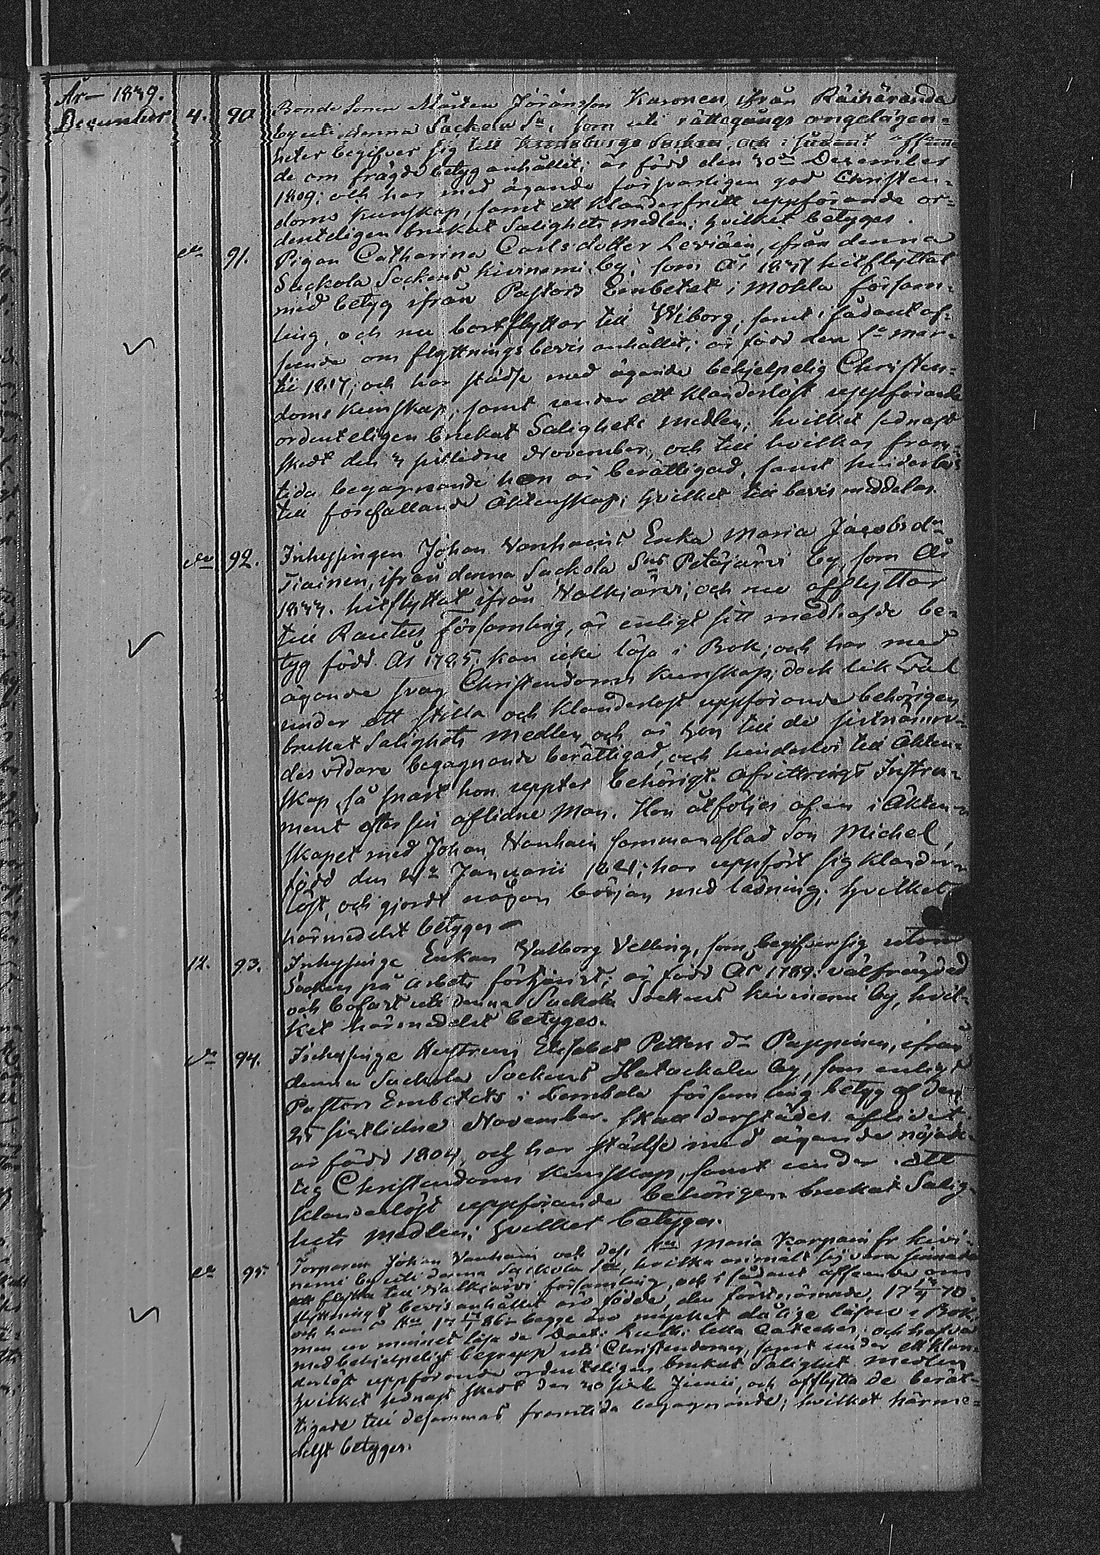 År 1839.
December 4. 90. Bonde Sonen Mårten Jöransson Karonen, ifrån Räihäranda
by uti denna Sackola Sn, som uti rättegångs angelägen-
heter begifver sig till Kronoborgs Socken och i sådant afseen-
de om frägde betyg anhållit; är född den 30de December
1809; och har med ägande försvarligen god Christen-
doms kunskap, samt ett klanderfritt uppförande or-
denteligen brukat Salighets medlen; hvilket betygas.
do 91. Pigan Catharina Carlsdotter Leviäin, ifrån denna
Sackola Sockens Kiviniemi by; som År 1837 hitflyttat
med betyg ifrån Pastors Embetet i Mohla försam-
ling, och nu bortflyttar till Wiborg, samt i sådant af-
seende om flyttningsbevis anhållit; är född den 1a Mar-
tii 1817; och har städse med ägande behjelpelig Christen-
doms kunskap, samt under ett klanderlöst uppförande
ordenteligen brukat Salighets medlen; hvilket sednast
skedt den 3 sistlidne November, och till hvilkas fram-
tida begagnande hon är berättigad, samt hinderlös
till förefallande Äktenskap; hvilket till bevis meddelas.
do 92. Inhysingen Johan Vanhains Enka Maria Jacobsdr
Tiainen, ifrån denna Sackola Sns Petäjärvi by, som År
hitflyttat ifrån Valkjärvi, och nu afflyttar
till Rautus församling, är enligt sitt medhafde be-
tyg född År 1785; kan icke läsa i Bok; och har med
ägande svag Christendoms kunskap; dock lik väl
under ett stilla och klanderlöst uppförande behörigen
brukat Salighets medlen, och är hon till de sistnämn-
des vidare begagnande berättigad, och hinderlös till Äkten-
skap, så snart hon uppter behörigt afvittrings Instru-
ment efter sin aflidne Man. Hon åtföljes af en i Äkten-
skapet med Johan Vanhain sammanaflad Son Michel,
född den Januarii 1821; har uppfört sig klander-
löst, och gjordt någon början med läsning; hvilket
härmedelst betygas
12. 93. Inhysinge Enkan Valborg Velling, som begifver sig utom
Socken på arbets förtjenst; är född År 1789; välfrägdad
och bofast uti denna Sackola Sockens Kiviniemi by, hvil-
ket härmedelst betygas.
do 94. Inhysinge Hustrun Elisabet Petters dr Pappinen, ifrån
denna Sackola Sockens Hatackala by, som enligt
Pastors Embetets i Lembola församling betyg af den
25 sistlidne November skall derstädes aflidit
är född 1804, och har städse med ägande nöjak-
tig Christendoms kunskap, samt under ett
klanderlöst uppförande behörigen brukat Salig-
hets medlen; hvilket betygas.
do 95. Torparen Johan Vanhain och dess Hu Maria Karpain fr Kivi-
niemi by uti denna Sackola Sn, hvilka anmält sig vara sinnade
att flytta till Valkjärvi församling, och i sådant afseende om
flyttnings bevis anhållit äro födde, den förstnämnde
och hans Hu begge äro mycket dålige läsare i Bok
men ur minnet läsa de Doct: Luth: lilla Cateches, och hafva
medbehjelpeligt begrepp uti Christendomen, samt under ett klan-
derlöst uppförande ordenteligen brukat Salighets medlen
hvilket sednast skedt den 30 sistl Junii, och afflytta de berät-
tigade till desammas framtida begagnande; hvilket härme-
delst betygas.